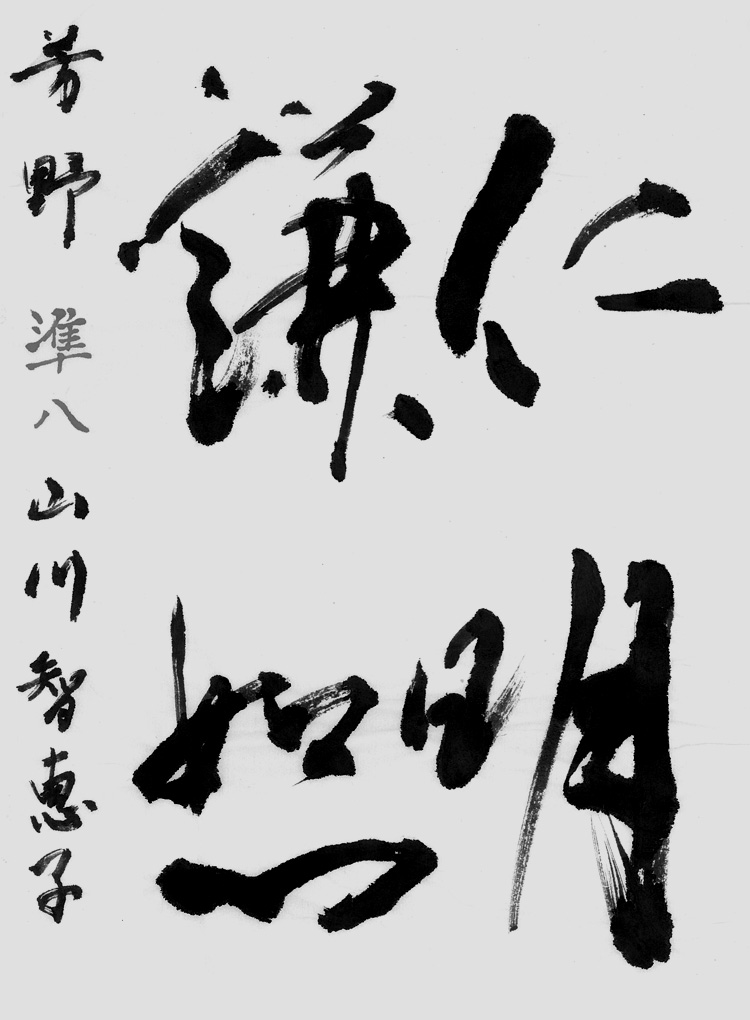 仁明
謙恕
芳野 準八 山川智恵子